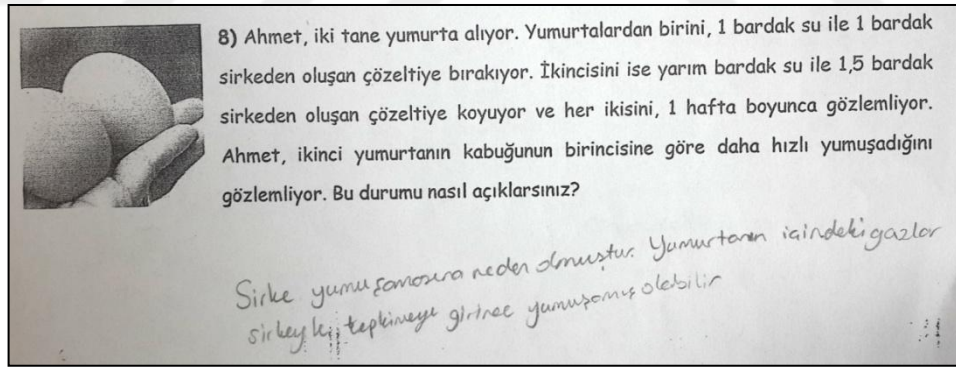 8) Ahmet, iki tane yumurta alıyor. Yumurtalardan birini, 1 bardak su ile 1 bardak
sirkeden oluşan çözeltiye bırakıyor. İkincisini ise yarım bardak su ile 1,5 bardak
sirkeden oluşan çözeltiye koyuyor ve her ikisini, 1 hafta boyunca gözlemliyor.
Ahmet, ikinci yumurtanın kabuğunun birincisine göre daha hızlı yumuşadığını
gözlemliyor. Bu durumu nasıl açıklarsınız?
Sirke yumuşamasına neden olmuştur. Yumurtanın içindeki gazlar
sirkeyle tepkimeye girince yumuşamış olabilir